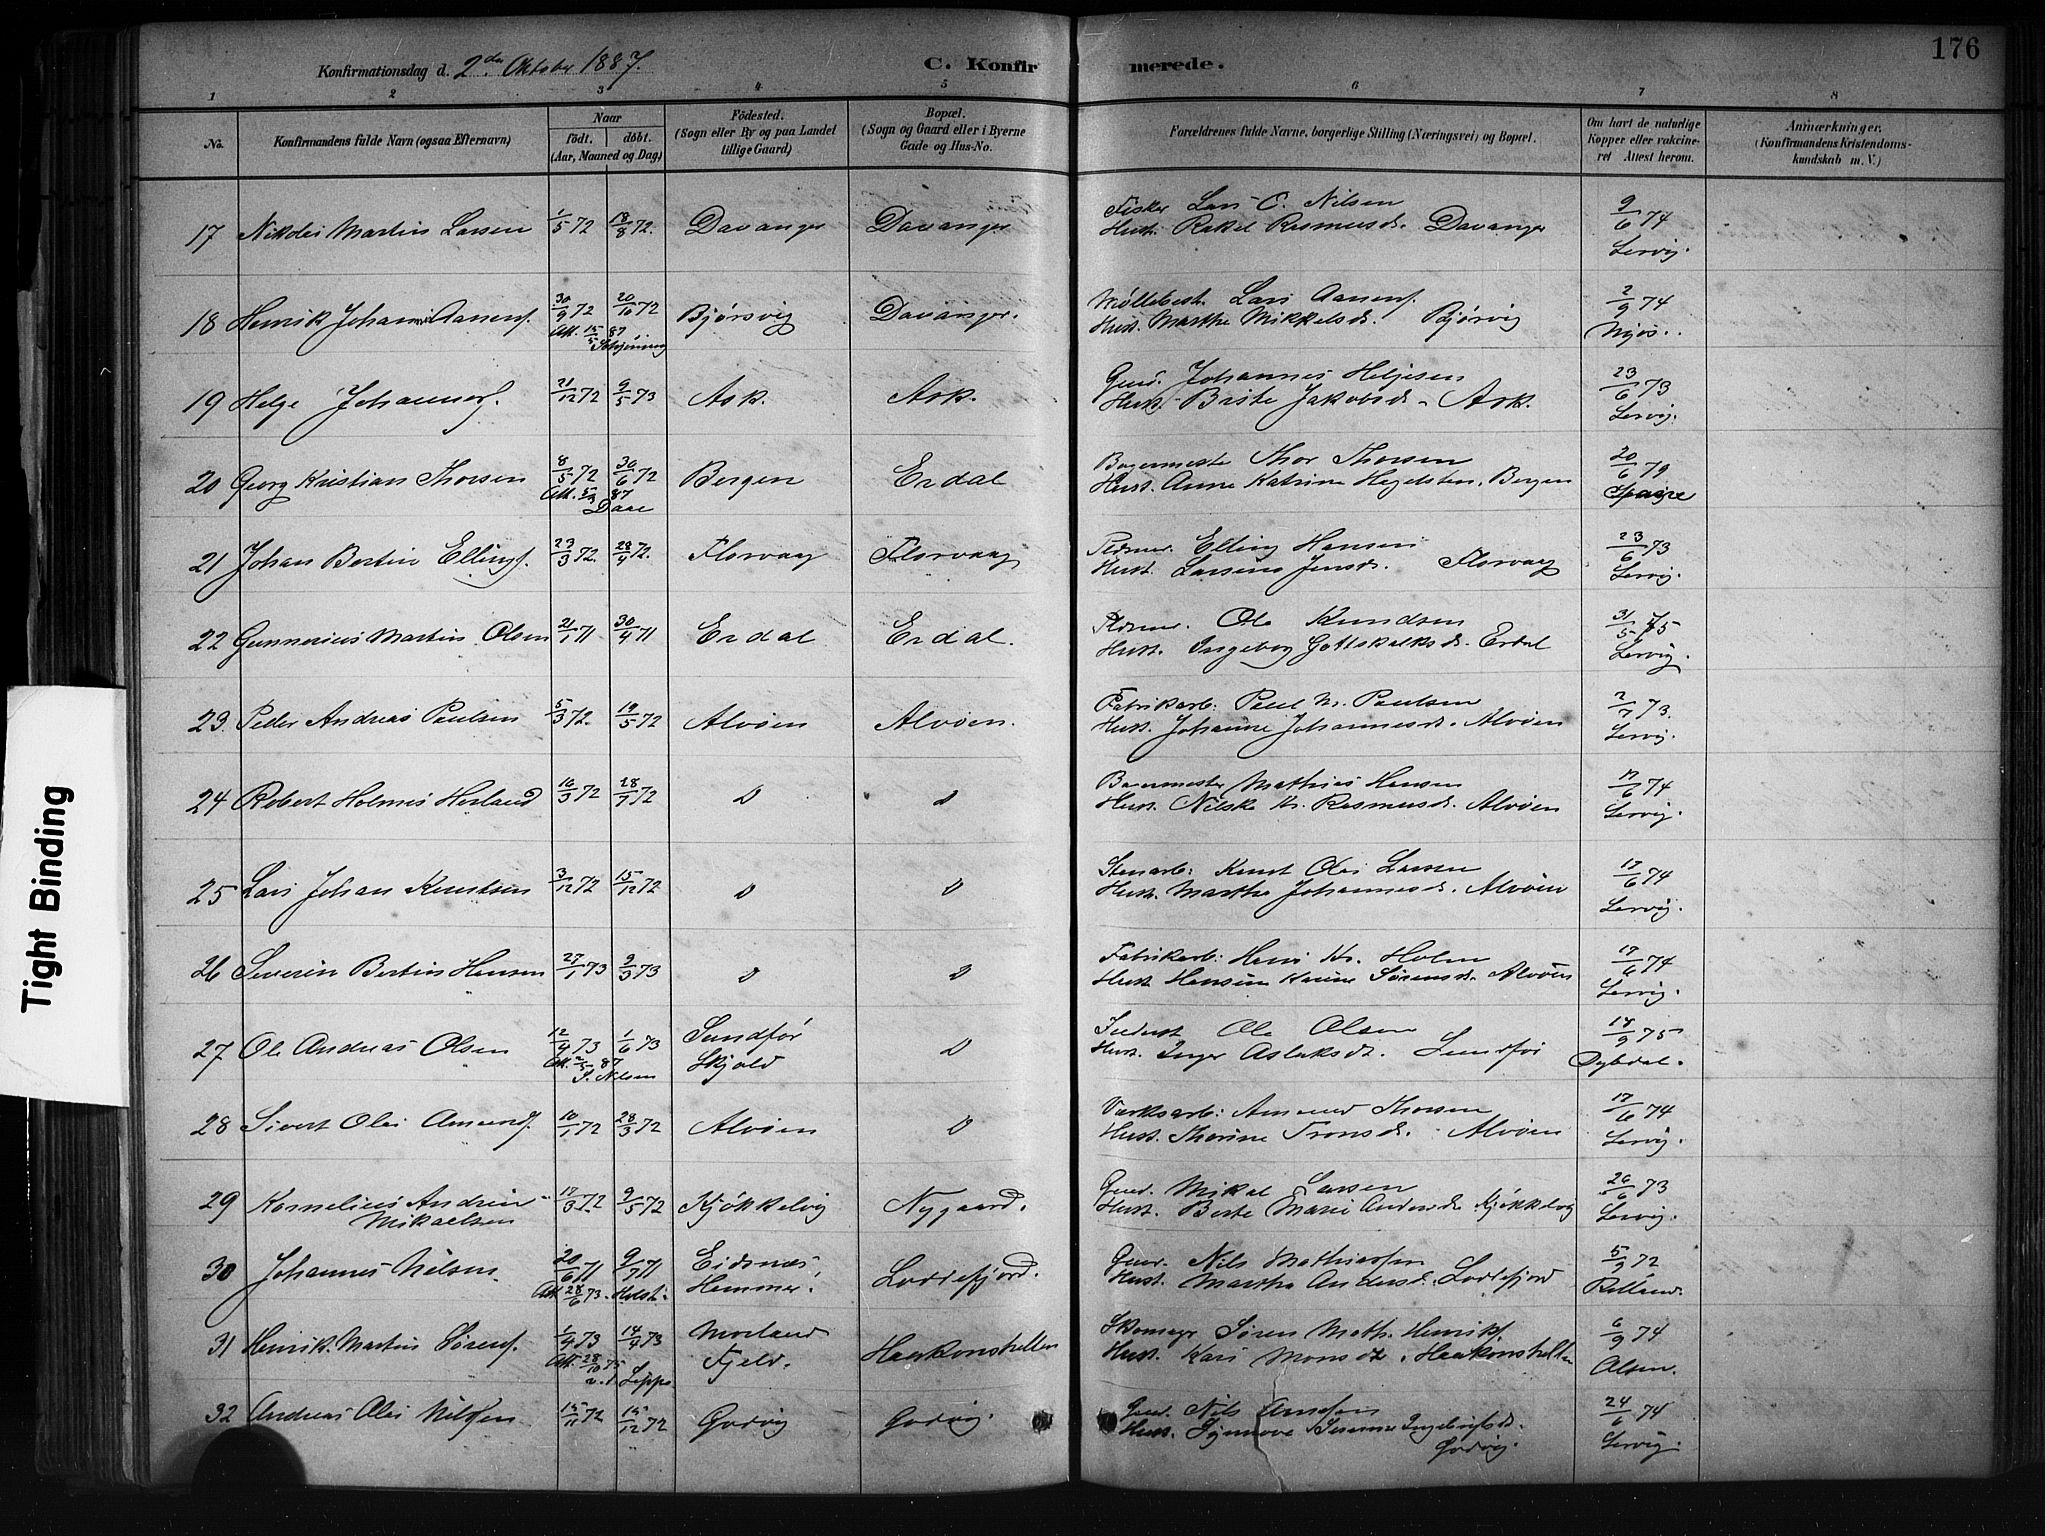 176
Konfirmationsdag d. 2den Oktober 1887. C. Konfirmerede.
1 2 3 4 5 6 7 8
No. Konfirmandens fulde Navn (ogsaa Efternavn) Naar født. døbt. (Aar, Maaned og Dag) Fødested. (Sogn eller By og paa Landet tillige Gaard) Bopæl. (Sogn og Gaard eller i Byerne Gade og Hus-No. Forældrenes fulde Navne, borgerlige Stilling (Næringsvei) og Bopæl. Om havt de naturlige Kopper eller vaccineret Attest herom. Anmærkninger. (Konfirmandens Kristendomskundskab m. V.)
17 Nikolai Martin Larsen 1/5 72 18/8 72. Davanger Davanger Fisker Lars C. Nilsen 9/6 74
Hust. Rakel Rasmusd. Davanger Lervig.
18 Henrik Johan Aanens. 30/9 72 20/10 72 Bjørsvig Davanger. Møllebest. Lars Aanens. 2/9 74
Att. 15/5 87 Hust. Marthe Mikkelsd. Bjørvig
19 Helge Johannes. 21/12 72 9/5 73 Ask. Ask. Gmd. Johannes Heljesen 23/6 73
Hust. Brite Jakobsd. Ask. Lervig.
20 Georg Kristian Thorsen 8/5 72 30/6 72 Bergen Erdal Bagermeste Thor Thorsen 20/6 79
Att. 87 Daae Hust. Anne Katrine Hegelsten. Bergen
21 Johan Bertin Ellings. 23/3 72. 28/4 72. Florvaag Florvaag Elling Hansen 23/6 73
Hust. Larsine Jensd. Florvaag Lervig.
22 Gunnerius Martin Olsen 21/1 71 30/4 71 Erdal Erdal. Ole Knudsen 31/5 75
Hust. Ingeborg Gottskalksd. Erdal Lervig.
23. Peder Andreas Paulsen 5/3 72. 19/5 72 Alvøen Alvøen. Fabrikarb. Paul M. Paulsen 2/7 73.
Hust. Johanne Johannesd. Alvøen Lervig.
24 Robert Holmes Herland 16/3 72 28/7 72 D D Bagermester Mathias Hansen 17/6 74
Hust. Nilske Rasmusd. Alvøen Lervig.
25 Lars Johan Knutsen 3/12 72 15/12 72 D D Stenarb: Knut Olai Larsen 17/6 74
Hust. Marthe Johannesd. Alvøen Lervig.
26 Severin Bertin Hansen 27/1 73 9/3 73 D D Fabrikarb: Hans Kr. Holm 17/6 74
Hust. Hansine Karine Sørensd. Alvøen Lervig.
27 Ole Andreas Olsen 12/4 73 1/6 73 Sundfør D Inderst Ole Olsen 18/9 75
Att. 2/5 87 S. Nilsen Skjold Hust. Inger Aslaksdt. Sundfør Dybdal.
28 Sivert Olai Amunds. 10/1 72 28/3 72 Alvøen D Værksarb: Amund Thorsen 17/6 74
Hust. Thorine Tronsd. Alvøen Lervig.
29 Kornelius Andrias 17/3 72 9/5 72 Kjøkkelvig Nygaard. Gmd. Mikal Larsen 26/6 73
Mikaelsen Hust. Berte Marie Andersd. Kjøkkelvig Lervig.
30 Johannes Nilsen. 20/6 71 9/7 71 Eidsnes Loddefjord. Gmd. Nils Mathiassen 5/9 72
Att. 28/6 73. Holst. Hammer. Hust. Martha Andersd. Loddefjord Rolland.
31 Henrik Martin Sørens. 1/4 73 14/4 73 Morland Haakonshellen Skomager Søren Math. Henriks. 6/9 74
Att. 28/10 75 Leppe Fjeld. Hust. Kari Monsdt. Haakonshellen Olsen.
32 Andreas Olai Nilssen 15/11 72 15/12 72 Godvig Godvig. Gmd. Nils Anessen 24/6 74
Hust. Synnove Ingebrigtsdt. Lervig.
Godvig.
Tight Binding